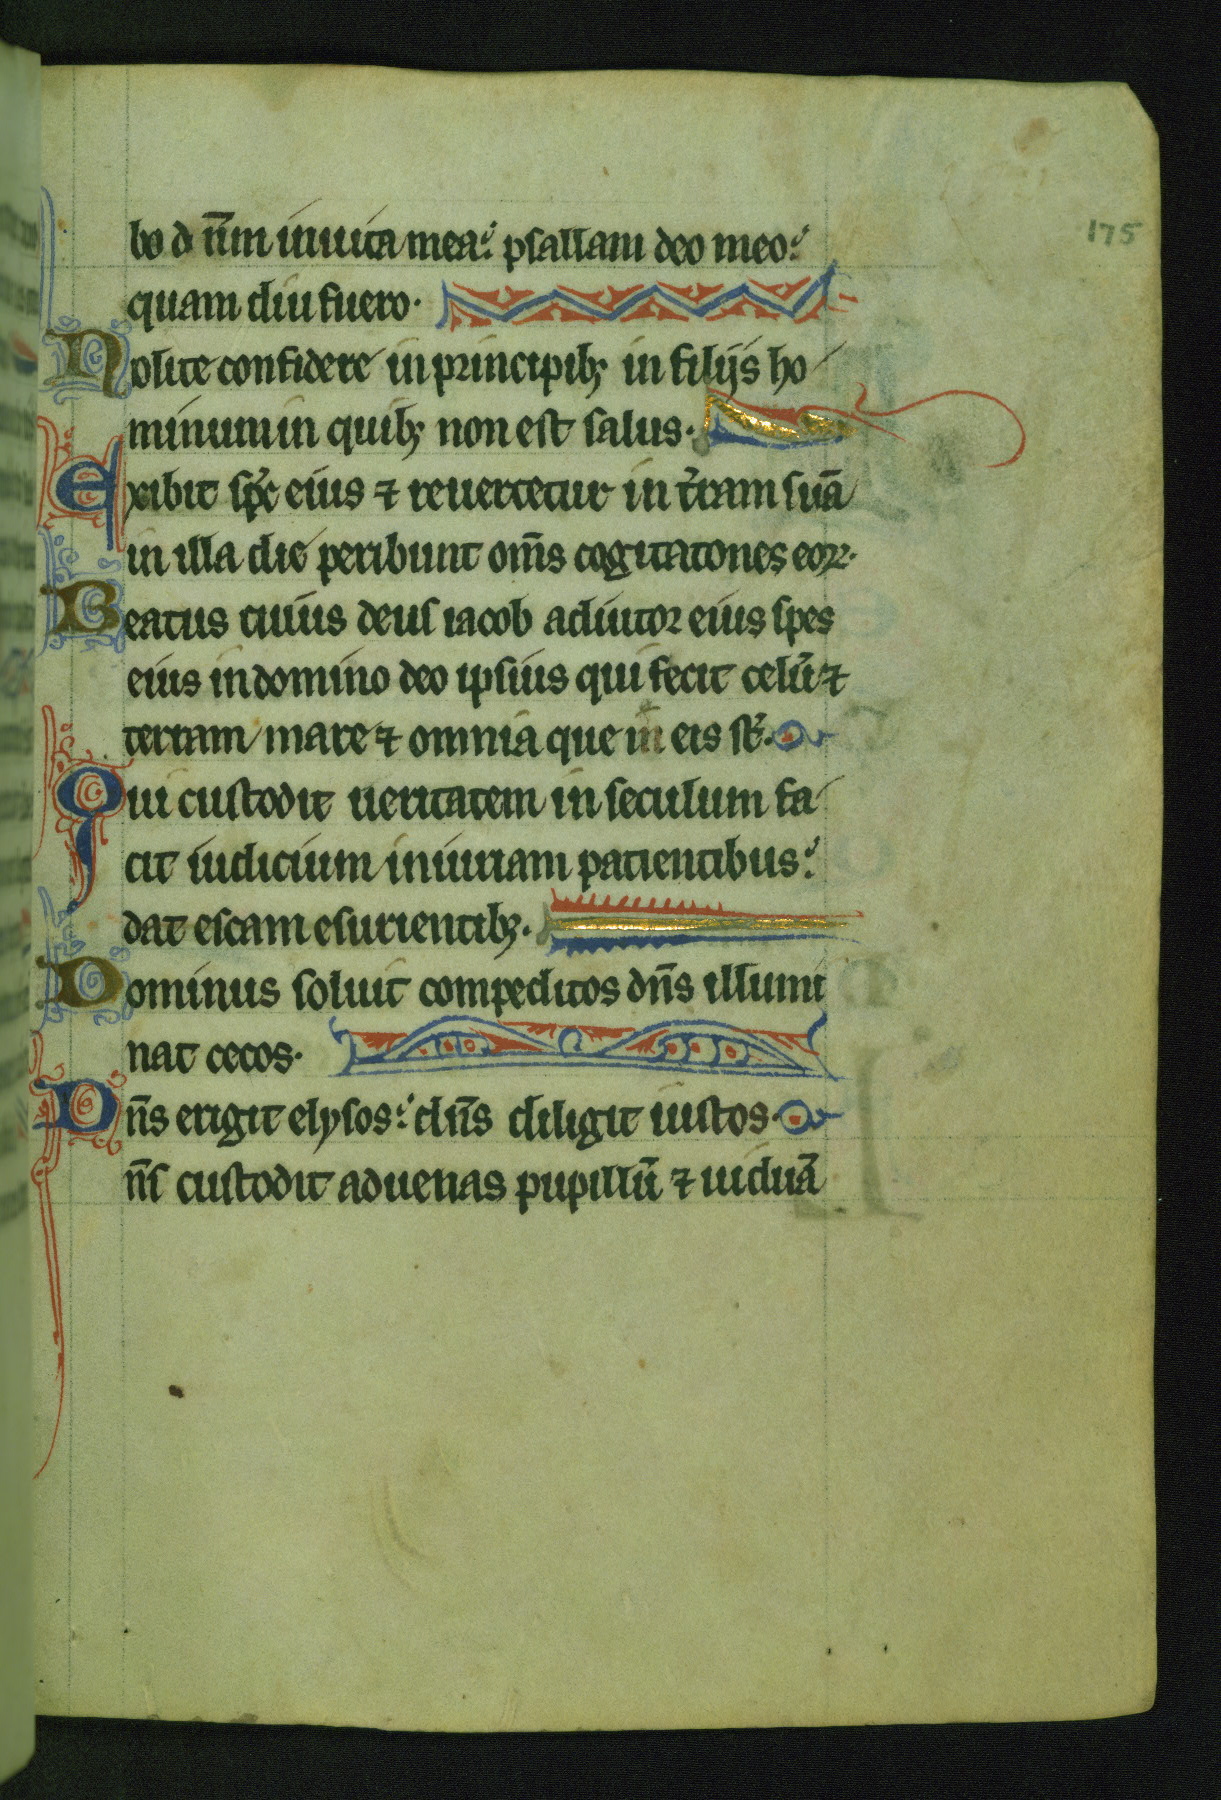 bo d n̄m in uita mea: psallam deo meo:
175
quam diu fuero·
Nolite confidere in principibꝫ in filijs ho
minum in quibꝫ non est salus·
Exibit sp̄c eius ⁊ reuertetur in t̉ram suā
in illa die peribunt om̄s cogitatones eoꝝ·
Beatus cuius deus iacob adiutor eius spes
eius in domino deo ipsius qui fecit celū ⁊
terram mare ⁊ omnia que in eis st̄·
Qui custodit ueritatem in seculum fa
cit iudicium iniuriam patientibus:
dat escam esurientibꝫ·
Dominus soluit compeditos dn̄s illumi
nat cecos·
Dn̄s erigit elysos: dn̄s diligit iustos·
n̄s custodit aduenas pupillū ⁊ uiduā